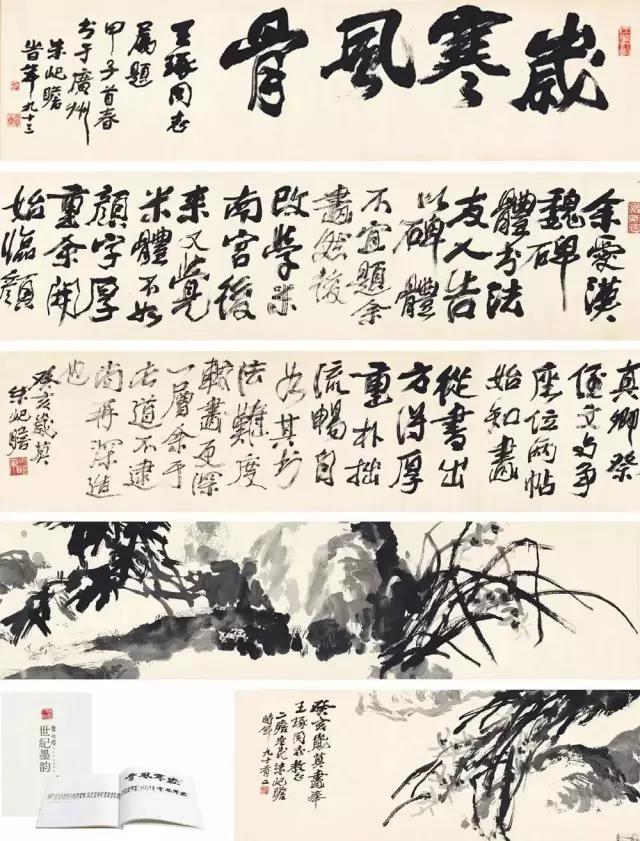 歲寒風骨
王琢同志
屬題
甲子首春
书于廣州
朱屺瞻
旹年九十三
余愛漢
魏碑
體书法
友人告
以碑體
不宜題余
畫然後
改學米
南宮後
來又覺
米體不如
顏字厚
重余開
始臨顏
真卿祭
侄文与爭
座位兩帖
始知畫
從書出
方得厚
重朴拙
流暢自
如其书
法難度
較畫更深
一層余于
书道不逮
尚再深造
也
癸亥歲莫
朱屺瞻
癸亥歲莫畫奉
王琢同志教正
二瞻老民朱屺瞻
時年九十有二
世纪墨韵
骨風寒歲